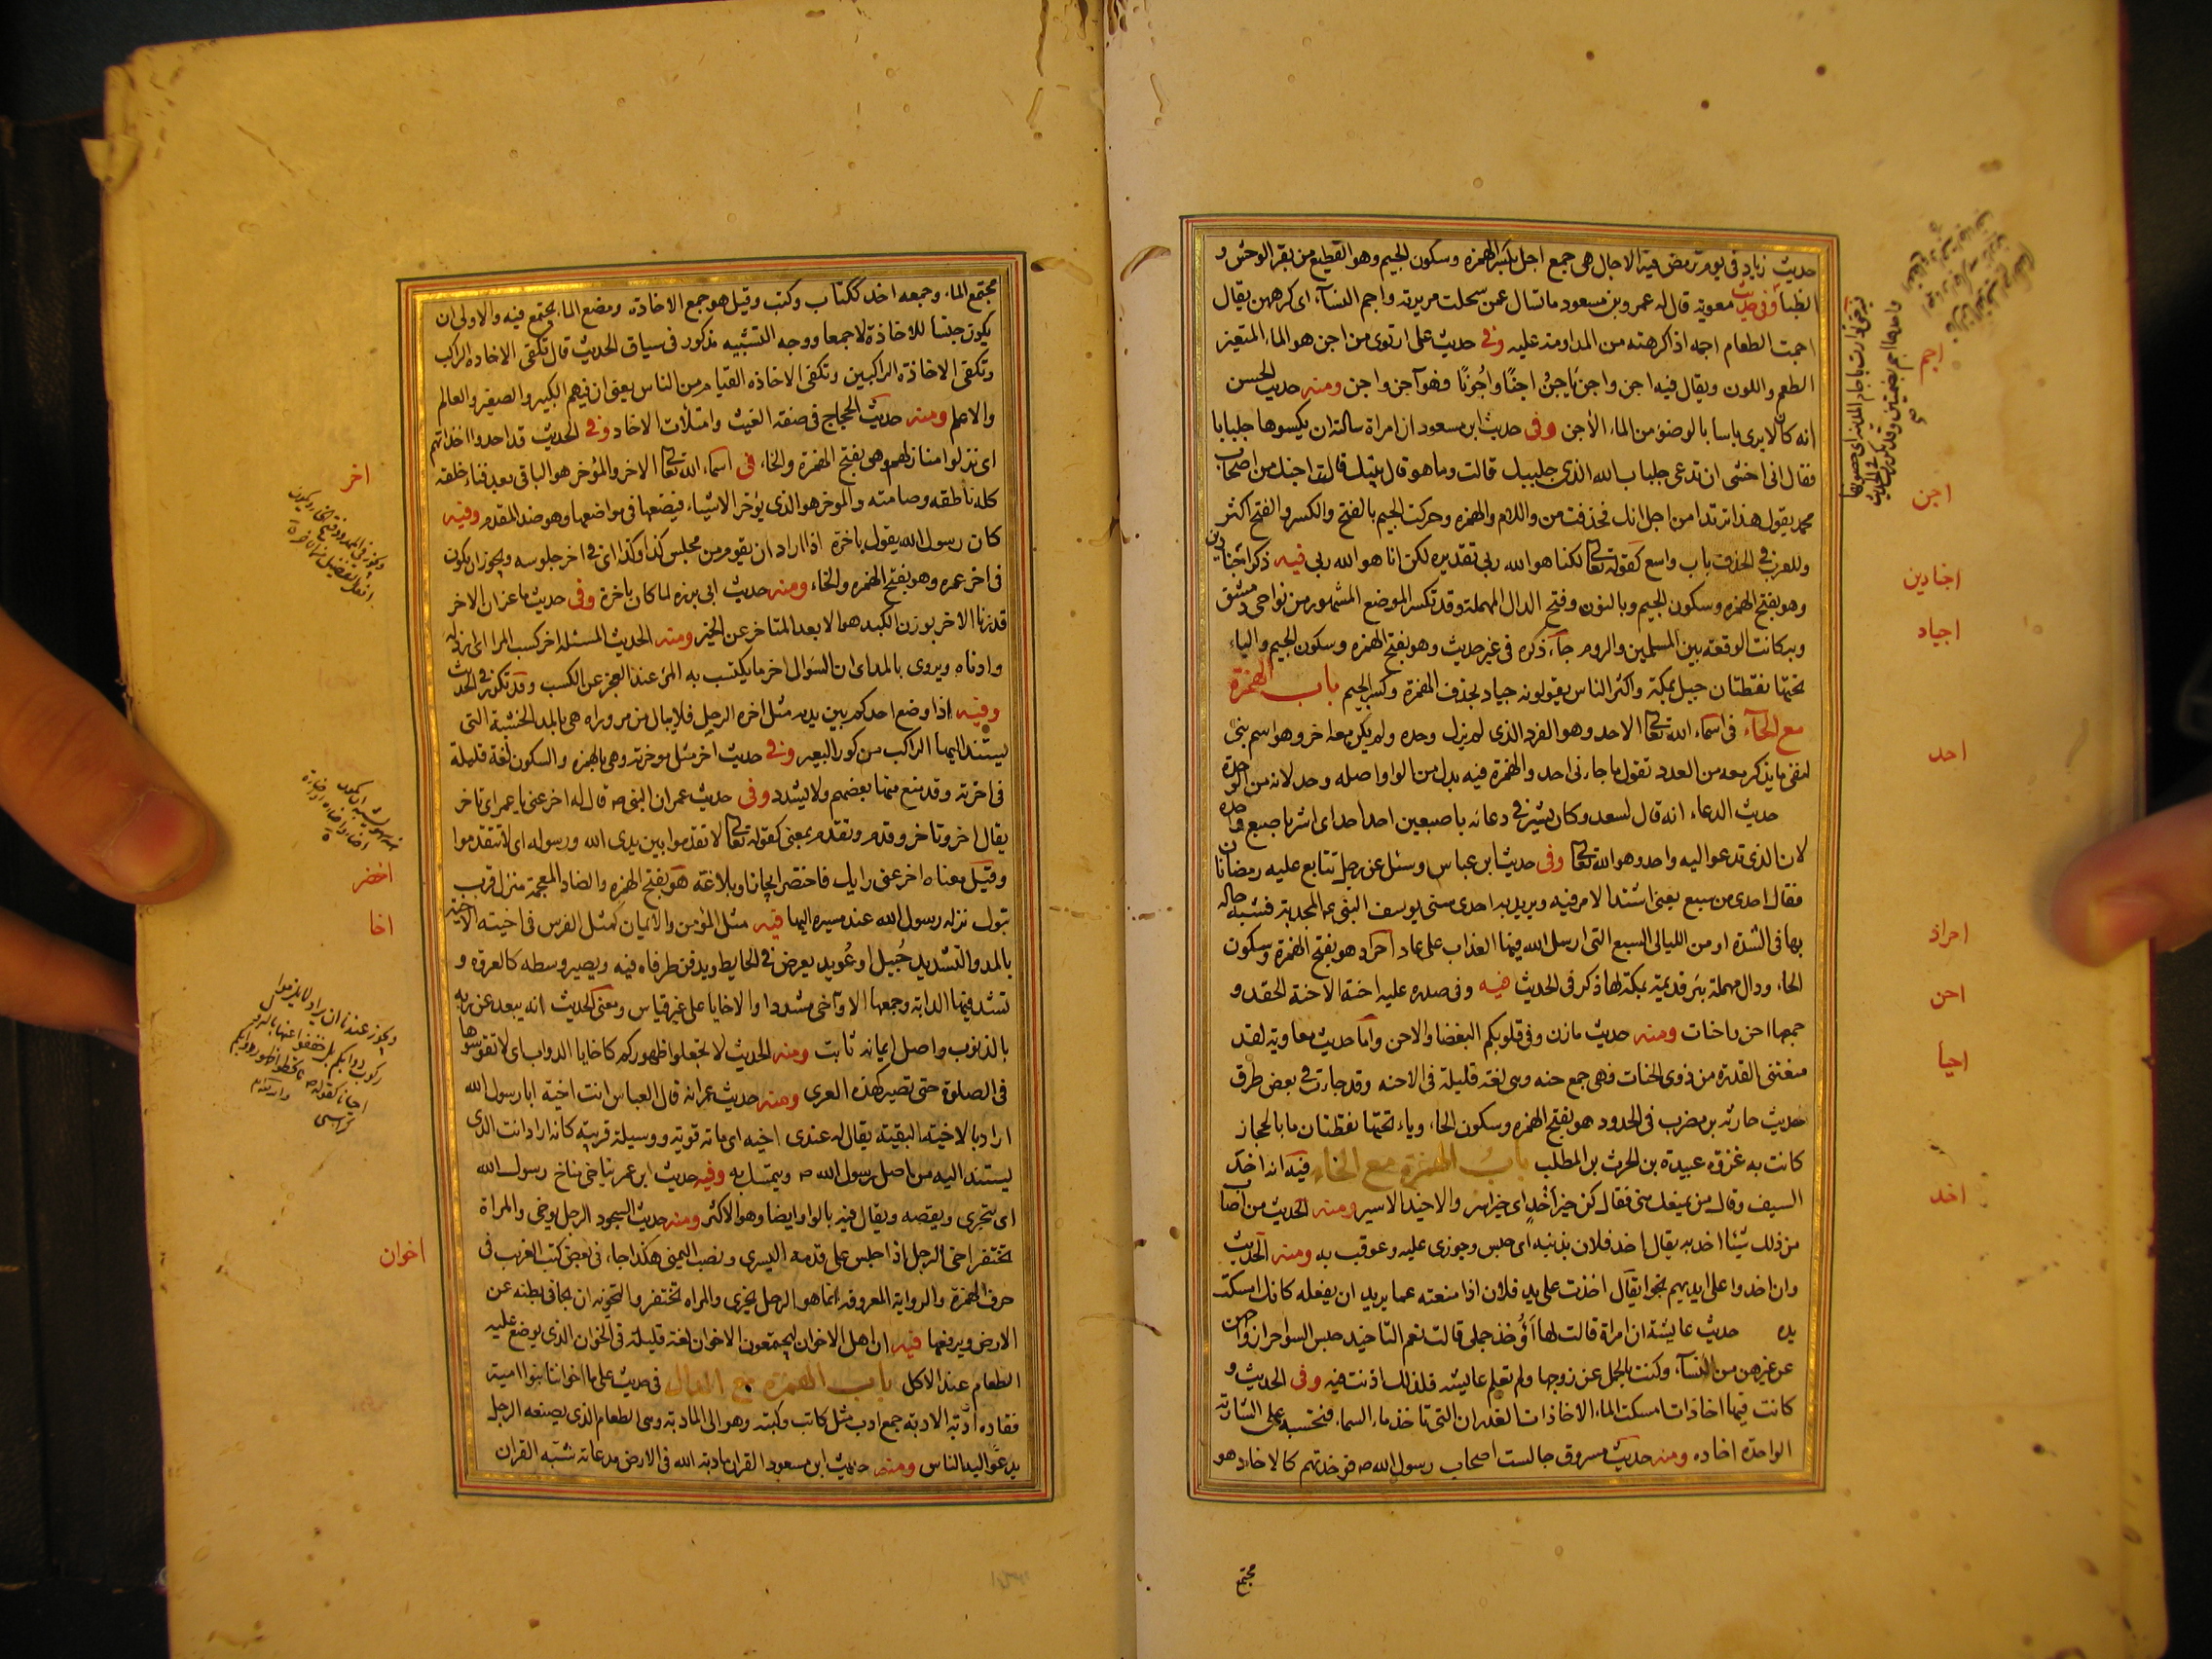 حديث زياد فى يوم ترمض فيه الاجال هى جمع اجل بكسر الهمزه وسكون الجيم وهو القطيع من بقر الوحش و
الظباء وفى حديث معويه قال له عمرو بن مسعود ما تسال عن سحلت مريرته واجم النسآء اى كرههن يقال
اجمت الطعام اجمه اذا كرهته من المداومه عليه وفى حديث على ارتوى من اجن هو الماء المتغير
الطعم واللون ويقال فيه اجن واجن يأجن ياجن اجنًا واُجونًا فهو آجن واجن ومنه حديث الحسن
انه كان لا يرى باسا بالوضوء من الماء الأجن وفى حديث ابن مسعود ان امراة سالته ان يكسوها جلبابا
فقال انى اخشى ان تدعى جلباب الله الذى جلببك قالت وما هو قال بيتك قالت اجنك من اصحاب
محمد يقول هذا تريد امن اجل انك فحذفت من واللام والهمزه وحركت الجيم بالفتح والكسر والفتح اكثر
وللعرب فى الحذف باب واسع كقوله تعالى لكنا هو الله ربى تقديره لكن انا هو الله ربى فيه ذكر اجنادين
وهو بفتح الهمزه وسكون الجيم وبالنون وفتح الدال المهملة وقد تكسر الموضع المشهور من نواحى دمشق
وبه كانت الوقعة بين المسلمين والروم جآء ذكره فى غير حديث وهو بفتح الهمزه وسكون الجيم والياء
تحتها نقطتان جبل بمكة واكثر الناس يقولونه جياد بحذف الهمزة وكسر الجيم باب الهمزة
مع الحآء فى اسماء الله تعالى الاحد وهو الفرد الذى لم يزل وحده ولم يكن معه اخر وهو اسم بنى
لنفى ما يذكر معه من العدد تقول ما جاءنى احد والهمزة فيه بدل من الواو واصله وحد لانه من الوحدة
حديث الدعاء انه قال لسعد وكان يشير فى دعائه باصبعين احد احد اى اشر باصبع واحده
لان الذى تدعوا اليه واحد وهو الله تعالى وفى حديث ابن عباس وسئل عن رجل تتابع عليه رمضانان
فقال احدى من سبع يعنى اشتد الامر فيه ويريد به احدى سنى يوسف النبى عم المجدبة فشبه حاله
بها فى الشدة او من الليالى السبع التى ارسل الله فيها العذاب على عاد احراد هو بفتح الهمزة وسكون
الحاء ودال مهملة بئر قديمة بمكة لها ذكر فى الحديث فيه وفى صدره عليه احنة الاحنة الحقد و
جمعها احن واحنات ومنه حديث مازن وفى قلوبكم البغضا والاحن واما حديث معاوية لقد
منعتنى القدرة من ذوى الحنات فهى جمع حنه وهى لغة قليلة فى الاحنه وقد جاءت فى بعض طرق
حديث حارثه بن مضرب فى الحدود هو بفتح الهمزه وسكون الحاء وياء تحتها نقطتان ما بالحجاز
كانت به غزوة عبيدة بن الحرث بن المطلب باب الهمزة مع الخاء فيه انه اخذ
السيف وقال من يمنعك منى فقال كن خير آخذ اى خير اسر والاخيذ الاسير ومنه الحديث من اصاب
من ذلك شيئا اخذ به يقال اخذ فلان بذنبه اى حبس وجوزى عليه وعوقب به ومنه الحديث
وان اخذوا على ايديهم نجوا يقال اخذت على يد فلان اذا منعته عما يريد ان يفعله كانك امسكت
يده حديث عايشة ان امراة قالت لها أؤخذ جملى قالت نعم التاخيذ حبس السواحر ازواجهن
عن غيرهن من النسآء وكنت بالجمل عن زوجها ولم تعلم عايشه فلذلك اذنت فيه وفى الحديث و
كانت فيها اخاذات امسكت الماء الاخاذات الغدران التى تاخذ ماء السماء فتحبسه على الشاربة
الواحدة اخاذه ومنه حديث مسروق جالست اصحاب رسول الله ص فوجدتهم كالاخاذ هو
مجتمع
اجم
اجن
اجنادين
اجياد
احد
احراد
احن
احيا
اخذ
مجتمع الماء وجمعه اخذ ككتاب وكتب وقيل هو جمع الاخاذة ومضع الماء يجتمع فيه والاولى ان
يكون جنسا للاخاذة لا جمعا ووجه التشبيه مذكور فى سياق الحديث قال تكفى الاخاذه الراكب
وتكفى الاخاذة الراكبين وتكفى الاخاذه الفيام من الناس يعنى ان فيهم الكبير والصغير والعالم
والاعلم ومنه حديث الحجاج فى صفة الغيث وامتلأت الاخاذ وفى الحديث قد اخذوا اخذاتهم
اى نزلوا منازلهم وهو بفتح الهمزة والخاء فى اسماء الله تعالى الاخر والمؤخر هو الباقى بعد فناء خلقه
كله ناطقه وصامته والموخر هو الذى يؤخر الاشياء فيضعها فى مواضعها وهو ضد المقدم وفيه
كان رسول الله يقول باخرة اذا اراد ان يقوم من مجلس كذا وكذا اى فى اخر جلوسه ويجوز ان يكون
فى اخر عمره وهو بفتح الهمزه والخاء ومنه حديث ابى برزه لما كان باخرة وفى حديث ماعز ان الاخر
قد زنا الاخر بوزن الكبد هو الابعد المتاخر عن الخير ومنه الحديث المسئله اخر كسب المرا اى ارذله
وادناه ويروى بالمد اى ان السؤال اخر ما يكتسب به المرء عند العجز عن الكسب وقد تكرر فى الحديث
وفيه اذا وضع احدكم بين يديه مثل اخره الرحل فلا يبال من مر وراه هى بالمد الخشبة التى
يستند اليها الراكب من كور البعير وفى حديث اخر مثل موخرته وهى بالهمزه والسكون لغة قليلة
فى اخرته وقد منع منها بعضهم ولا يشدد وفى حديث عمر ان النبى ص قال له اخر عنى يا عمر اى تاخر
يقال اخر وتاخر وقدم وتقدم بمعنى كقوله تعالى لا تقدموا بين يدى الله ورسوله اى لا تتقدموا
وقيل معناه اخر عنى رايك فاختصر ايجازا وبلاغة هو بفتح الهمزه والضاد المعجمة منزل قرب
تبوك نزله رسول الله عند مسيره اليها فيه مثل المؤمن والايمان كمثل الفرس فى اخيته الاخية
بالمد والتشديد حُبيل او عُويد يعرض فى الحايط ويدفن طرفاه فيه ويصير وسطه كالعروة و
تشد فيها الدابة وجمعها الاواخى مشددا والاخايا على غير قياس ومعنى الحديث انه يبعد عن ربه
بالذنوب واصل ايمانه ثابت ومنه الحديث لا تجعلوا ظهوركم كاخايا الدواب اى لا تقوسوها
فى الصلوة حتى تصير كهذه العرى ومنه حديث عمر انه قال العباس انت اخية ابا رسول الله
اراد بالاخية البقية يقال له عندى اخيه اى ماتة قوية ووسيلة قريبة كانه اراد انت الذى
يستند اليه من اصل رسول الله ص ويتمسك به وفيه حديث ابن عمر يتاخى مناخ رسول الله
اى يتحرى ويقصده ويقال فيه بالواو ايضا وهو الاكثر ومنه حديث السجود الرجل يوخى والمراة
تحتفز اخى الرجل اذا جلس على قدمه اليسرى ونصب اليمنى هكذا جاء فى بعض كتب الغريب فى
حرف الهمزة والرواية المعروفه انما هو الرجل يخوى والمراه تحتفز والتخويه ان يجافى بطنه عن
الارض ويرفعها فيه ان اهل الاخوان ليجتمعون الاخوان لغة قليلة فى الخوان الذى يوضع عليه
الطعام عند الاكل باب الهمزة مع الدال فى حديث على اما اخواننا بنوا امية
فقاده ادبة الادبة جمع ادب مثل كاتب وكتبه وهو الى المادبة وهى الطعام الذى يصنعه الرجل
يدعوا اليه الناس ومنه حديث ابن مسعود القران مادبة الله فى الارض مدعاته شبه القران
اخر
اخضر
اخا
اخوان